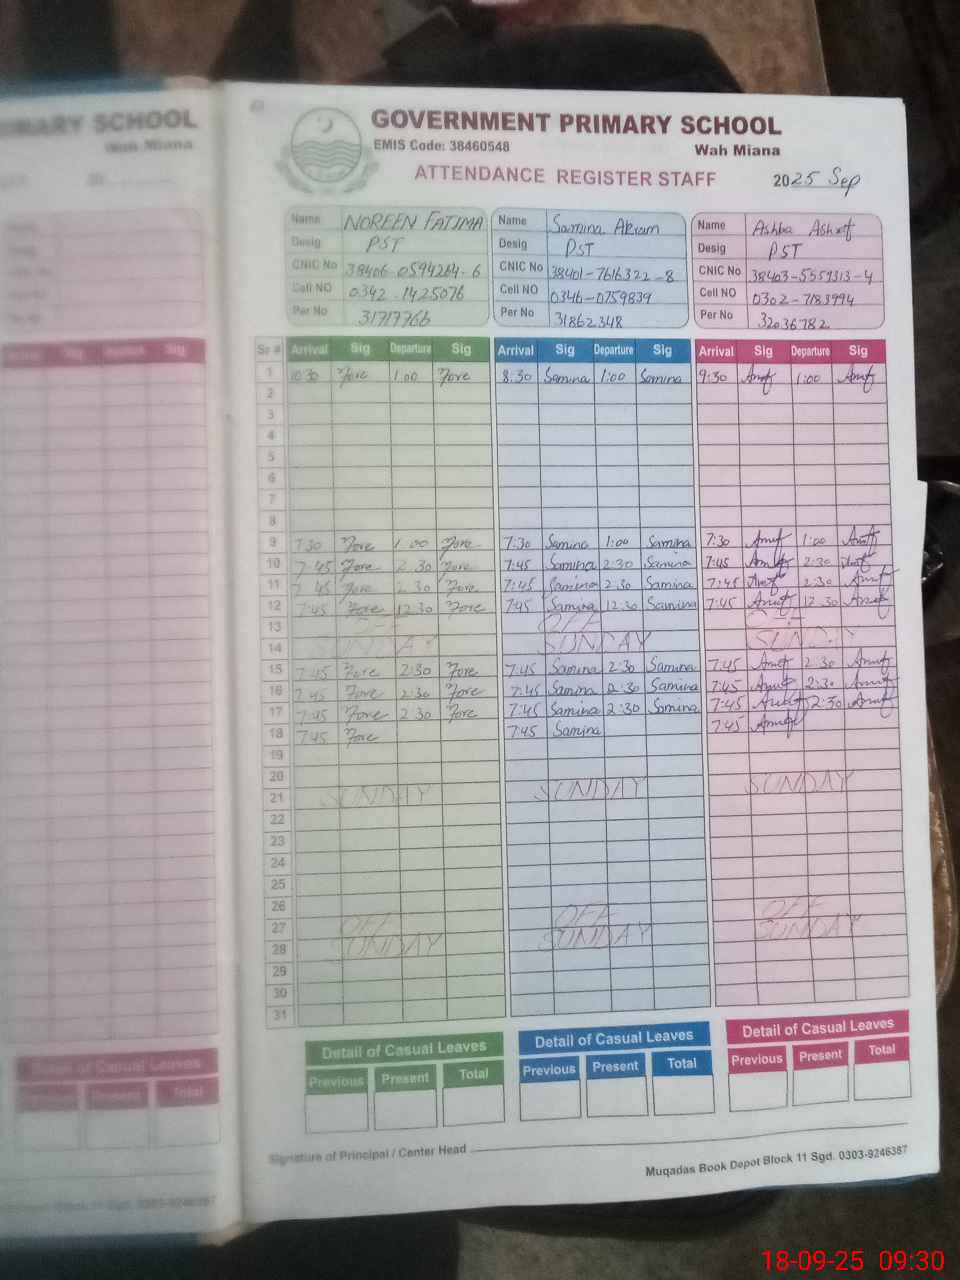 GOVERNMENT PRIMARY SCHOOL
EMIS Code: 38460548
Wah Miana
ATTENDANCE REGISTER STAFF
2025 Sep
Name NOREEN FATIMA Name Samina Akram Name Ashba Ashraf
Desig PST Desig PST Desig PST
CNIC No 38406-0594264-6 CNIC No 38401-7616322-8 CNIC No 38403-5559313-4
Cell NO 0342-1425076 Cell NO 0346-0759839 Cell NO 0302-7183994
Per No 31717766 Per No 31862348 Per No 32036782
Sr # Arrival Sig Departure Sig Arrival Sig Departure Sig Arrival Sig Departure Sig
1 10:30 1:00 8:30 Samina 1:00 Samina 9:30 1:00
2
3
4
5
6
7
8
9 7:30 1:00 7:30 Samina 1:00 Samina 7:30 1:00
10 7:45 2:30 7:45 Samina 2:30 Samina 7:45 2:30
11 7:45 2:30 7:45 Samina 2:30 Samina 7:45 2:30
12 7:45 12:30 7:45 Samina 12:30 Samina 7:45 12:30
13 OFF OFF OFF
14 SUNDAY SUNDAY SUNDAY
15 7:45 2:30 7:45 Samina 2:30 Samina 7:45 2:30
16 7:45 2:30 7:45 Samina 2:30 Samina 7:45 2:30
17 7:45 2:30 7:45 Samina 2:30 Samina 7:45 2:30
18 7:45 7:45 Samina 7:45
19
20
21 SUNDAY SUNDAY SUNDAY
22
23
24
25
26
27 OFF OFF OFF
28 SUNDAY SUNDAY SUNDAY
29
30
31
Detail of Casual Leaves Detail of Casual Leaves Detail of Casual Leaves
Previous Present Total Previous Present Total Previous Present Total
Signature of Principal / Center Head
Muqadas Book Depot Block 11 Sgd. 0303-9246387
PRIMARY SCHOOL
Wah Miana
Detail of Casual Leaves
Present Total
18-09-25 09:30